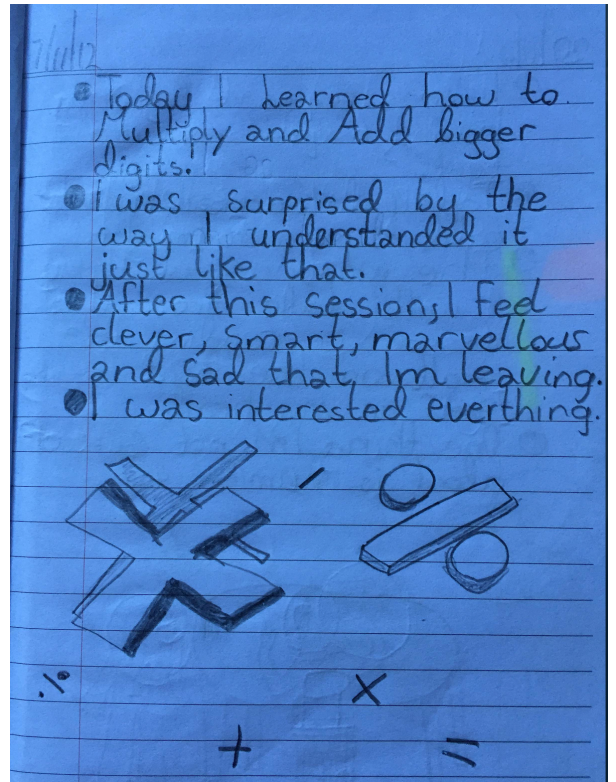 7/11/12
• Today I Learned how to
Multiply and Add bigger
digits!
• I was surprised by the
way I understanded it
just like that.
• After this session, I feel
clever, smart, marvellous
and sad that Im leaving.
• I was interested everthing.
-
÷
×
+ =